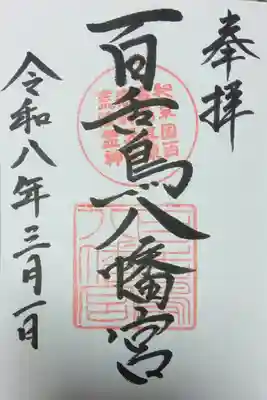 奉拝
百舌鳥八幡宮
令和八年三月一日